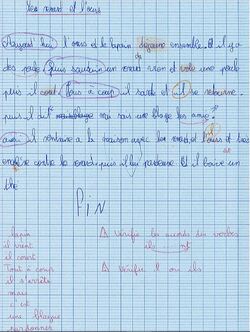 Le renard et l'ours
Aujourd'hui l'ours et le lapin déjeune ensemble. Et il y a
des poule. Puis soudain un renard vien et vole une poule
puis il cour. Tous à coup il s'arete et il se retourne.
puis il dit mai sais une blage les amie
il rentraire a la maison avec le renard et l'ours et très
contre le renard. puis il lui pardonne Et il boive un
thé
FIN
lapin
il vient
il court
Tout à coup
il s'arrête
mais
c'est
une blague
pardonner
Δ Vérifie les accords des verbes
ils ... nt
Δ Vérifie il ou ils